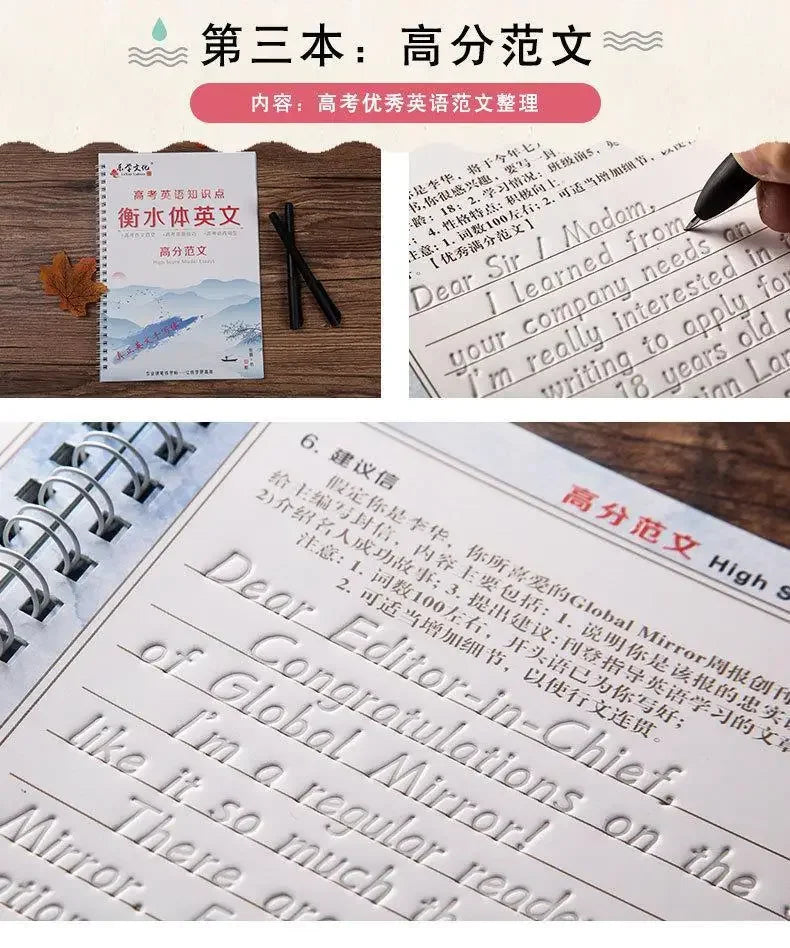 第三本：高分范文
内容：高考优秀英语范文整理
乐学文化
高考英语知识点
衡水体英文
高分范文
High Score Model Essays
是李华，将于今年七
书,你很感兴趣，要写一封
龄：18；2.学习情况：班级前5，英
；4.性格特点：积极向上。
注意：1.词数100左右；2.可适当增加细节，以使行
【优秀满分范文】
Dear Sir / Madam,
I learned from
your company needs an
I'm really interested in
writing to apply for
18 years old
6. 建议信
高分范文 High S
假定你是李华，你所喜爱的Global Mirror周报创刊
给主编写封信，内容主要包括：1. 说明你是该报的忠实
2)介绍名人成功故事；3. 提出建议:刊登指导英语学习的文章
注意：1. 词数100左右，开头语已为你写好；
2. 可适当增加细节，以使行文连贯。
Dear Editor-in-Chief,
Congratulations on the
of Global Mirror!
I'm a regular reader
like it so much that
There are
Mirror.